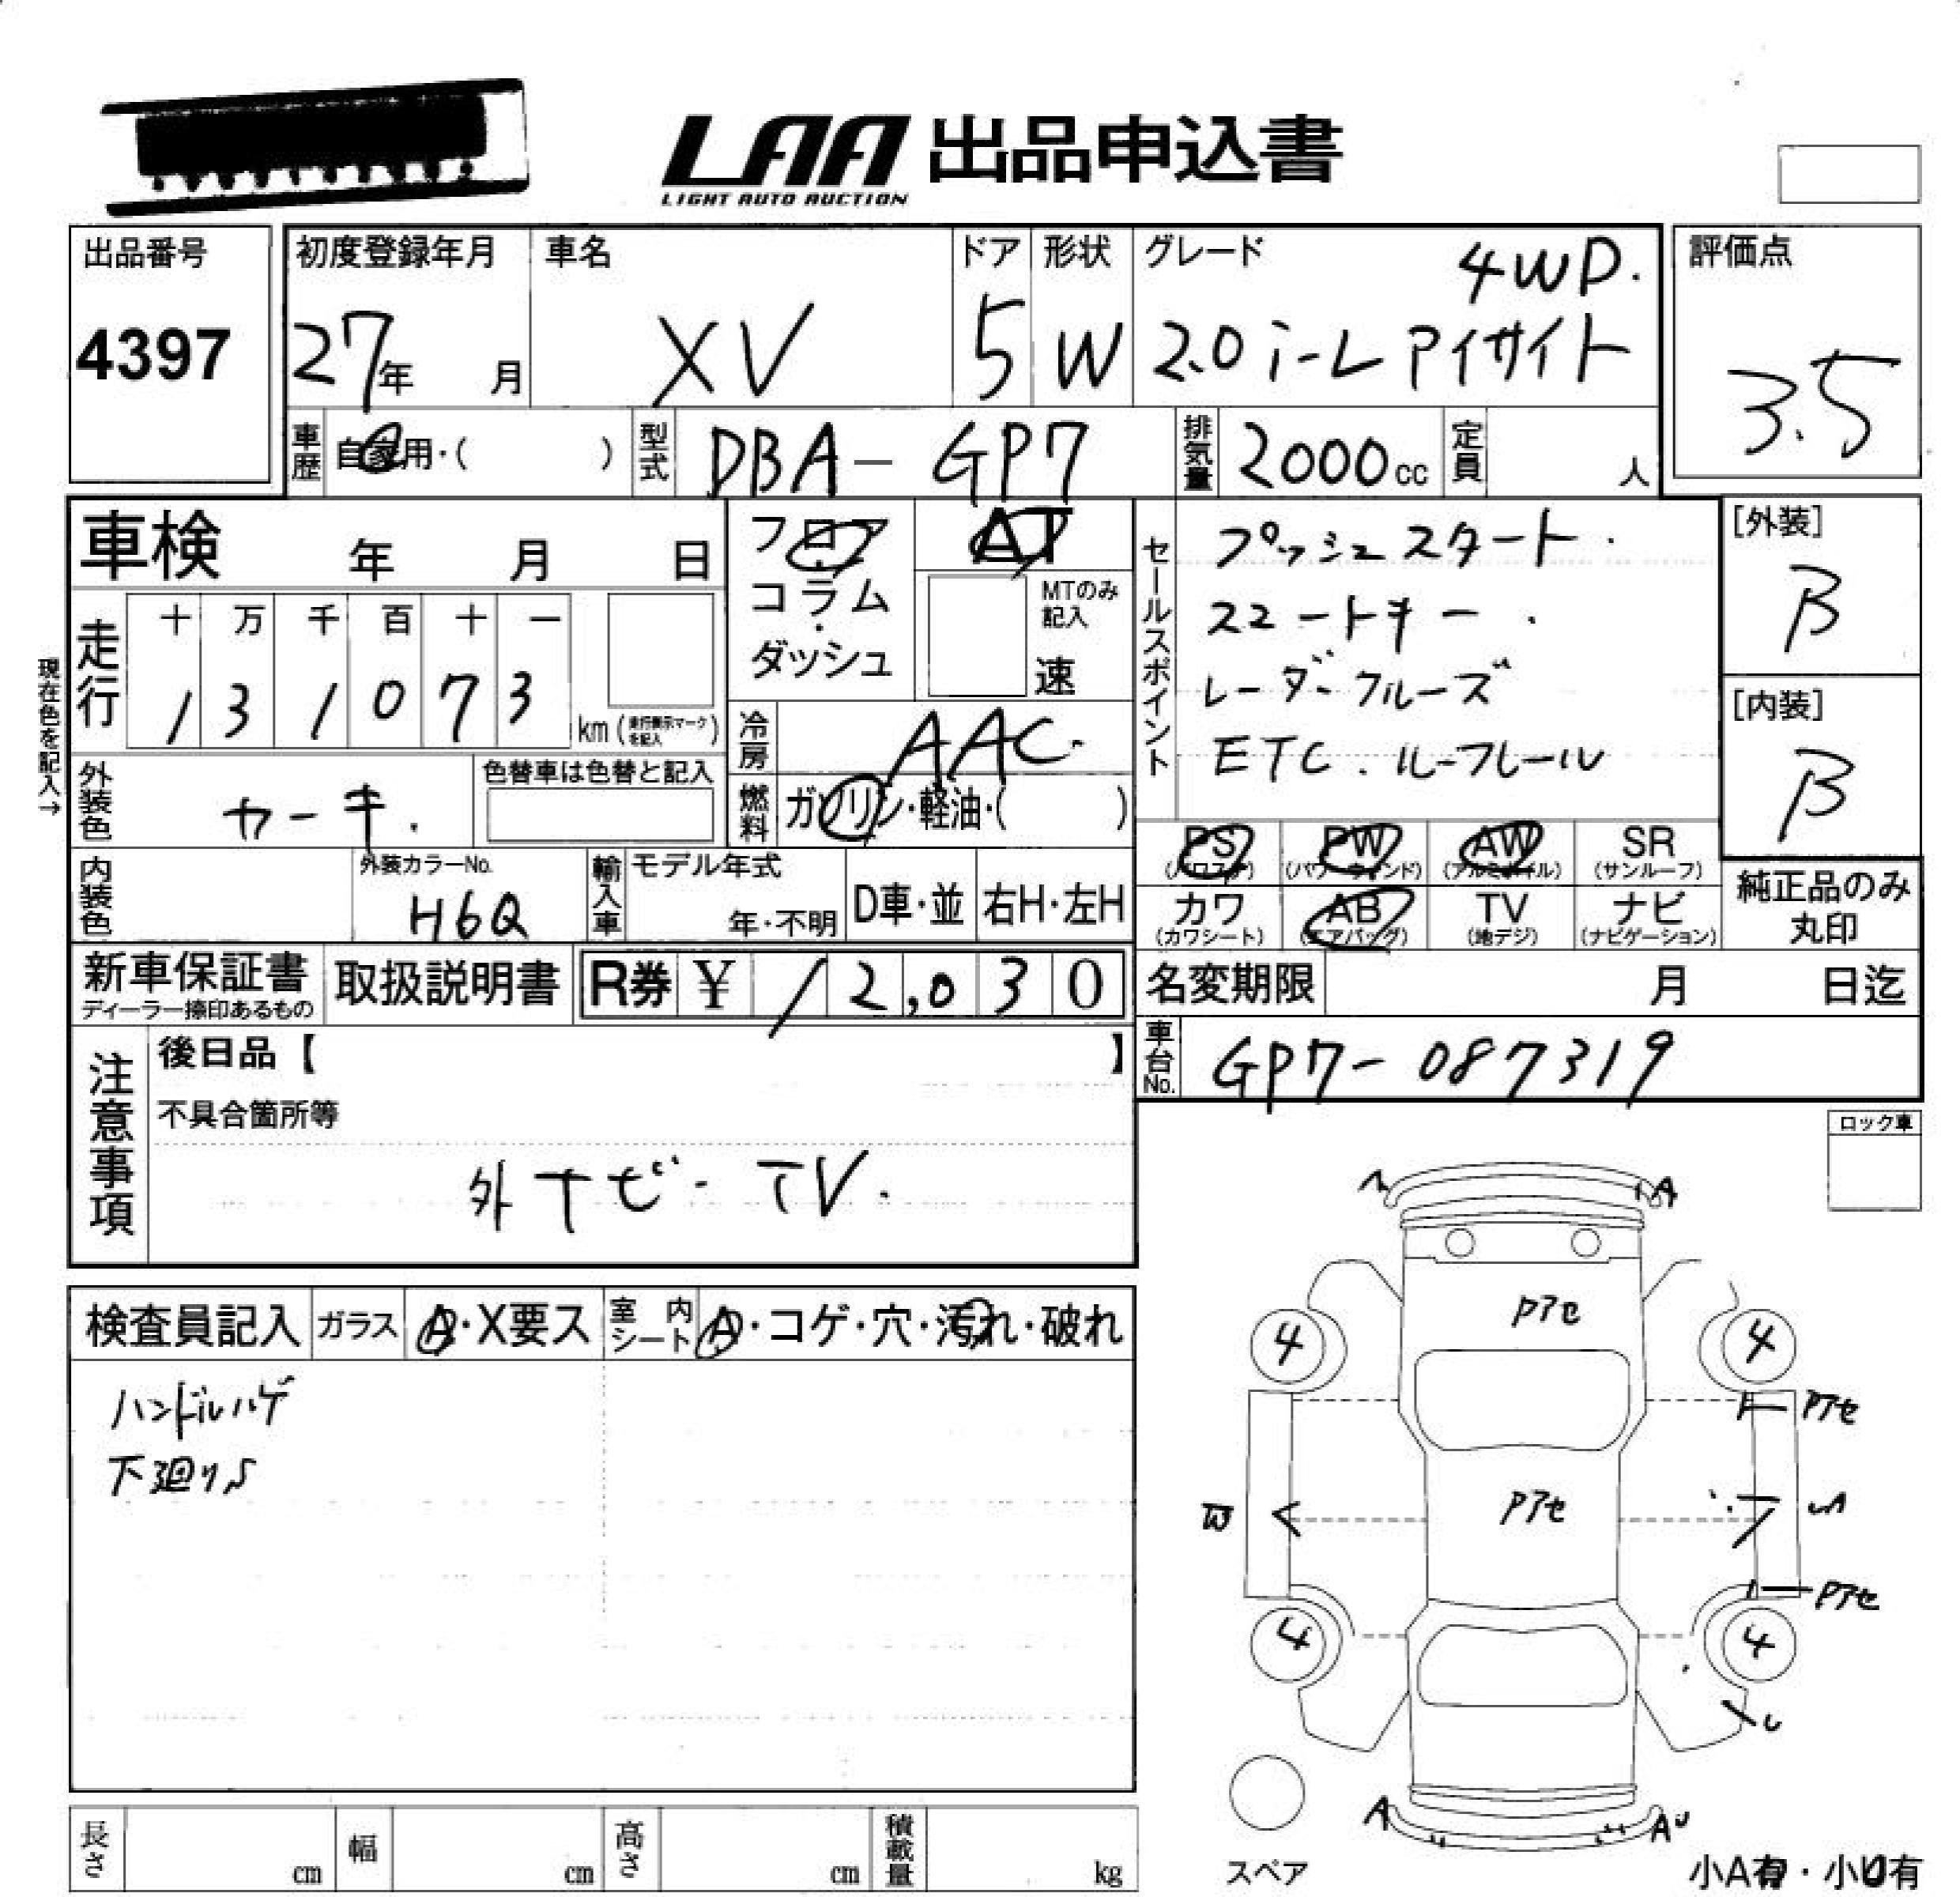 LAA 出品申込書
LIGHT AUTO AUCTION
出品番号
4397
初度登録年月
27年 月
車名
XV
ドア
5
形状
W
グレード
4WD.
2.0i-L アイサイト
評価点
3.5
車歴
自家用・( )
型式
DBA-GP7
排気量
2000cc
定員
人
車検 年 月 日
フロア
コラム
・
ダッシュ
AT
MTのみ
記入
速
セールスポイント
プッシュスタート.
スマートキー.
レーダークルーズ
ETC.ルーフレール
[外装]
B
[内装]
B
現在色を記入→
走行
十 万 千 百 十 一
1 3 1 0 7 3
km
冷房
AAC.
外装色
カーキ.
色替車は色替と記入
燃料
ガソリン・軽油・( )
PS PW AW SR
(パワステ) (パワーウィンド) (アルミホイル) (サンルーフ)
カワ AB TV ナビ
(カワシート) (エアバッグ) (地デジ) (ナビゲーション)
純正品のみ
丸印
内装色
外装カラーNo.
H6Q
輸入車
モデル年式
年・不明
D車・並
右H・左H
新車保証書
ディーラー捺印あるもの
取扱説明書
R券 ¥ 12,030
名変期限 月 日迄
車台No.
GP7-087319
注意事項
後日品【 】
不具合箇所等
外ナビ-TV.
ロック車
検査員記入
ガラス
A・X要ス
室内シート
A・コゲ・穴・汚れ・破れ
ハンドルハゲ
下廻りS
A
Pアセ
4
4
Pアセ
Pアセ
Pアセ
4
4
A
スペア
小A有・小U有
長さ cm
幅 cm
高さ cm
積載量 kg